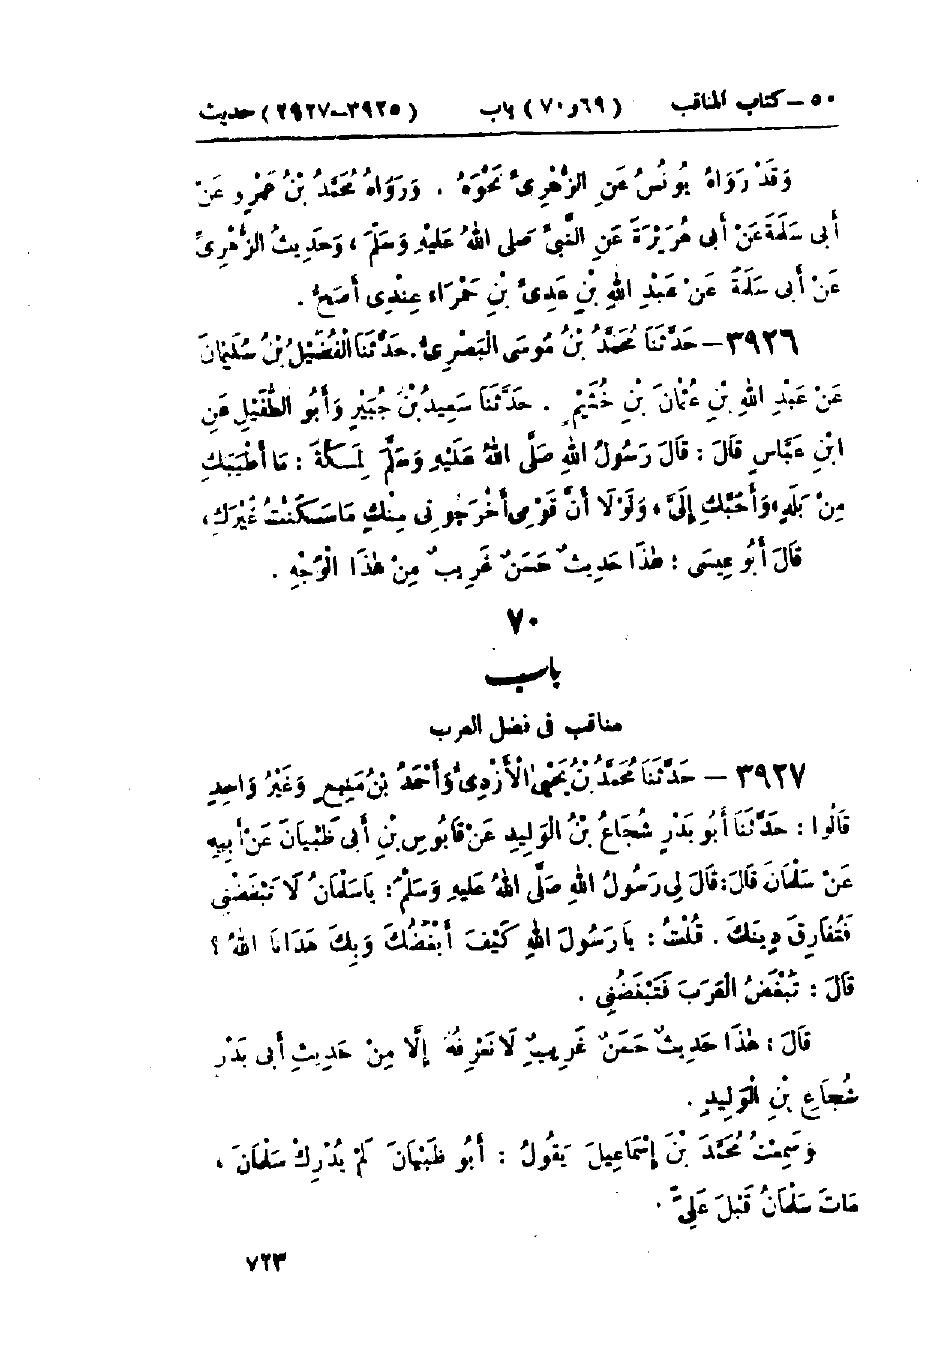 ٥٠ – كتاب المناقب (٦٩ و ٧٠) باب (٣٩٢٥–٣٩٢٧) حديث
وَقَدْ رَوَاهُ يُونُسُ عَنِ الزُّهْرِىِّ نَحْوَهُ . وَرَوَاهُ مُحَمَّدُ بْنُ عَمْرٍو عَنْ
أَبِى سَلَمَةَ عَنْ أَبِى هُرَيْرَةَ عَنِ النَّبِىِّ صَلى اللهُ عَلَيْهِ وَسَلَّمَ ، وَحَدِيثُ الزُّهْرِىِّ
عَنْ أَبِى سَلَمَةَ عَنْ عَبْدِ اللهِ بْنِ عَدِىِّ بْنِ حَمْرَاءِ عِنْدِى أَصَحُّ .
٣٩٢٦ – حَدَّثَنَا مُحَمَّدُ بْنُ مُوسَى الْبَصْرِىُّ . حَدَّثَنَا الْفُضَيْلُ بْنُ سُلَيْمَانَ
عَنْ عَبْدِ اللهِ بْنِ عُثْمَانَ بْنِ خُثَيْمٍ . حَدَّثَنَا سَعِيدُ بْنُ جُبَيْرٍ وَأَبُو الطُّفَيْلِ عَنِ
ابْنِ عَبَّاسٍ قَالَ : قَالَ رَسُولُ اللهِ صَلَّى اللهُ عَلَيْهِ وَسَلَّمَ لِمَكَّةَ : مَا أَطْيَبَكِ
مِنْ بَلَدٍ ، وَأَحَبَّكِ إِلَىَّ ، وَلَوْلَا أَنَّ قَوْمِى أَخْرَجُونِى مِنْكِ مَا سَكَنْتُ غَيْرَكِ ،
قَالَ أَبُو عِيسَى : هٰذَا حَدِيثٌ حَسَنٌ غَرِيبٌ مِنْ هٰذَا الْوَجْهِ .
٧٠
باب
مناقب فى فضل العرب
٣٩٢٧ – حَدَّثَنَا مُحَمَّدُ بْنُ يَحْيَى الْأَزْدِىُّ وَأَحْمَدُ بْنُ مَنِيعٍ وَغَيْرُ وَاحِدٍ
قَالُوا : حَدَّثَنَا أَبُو بَدْرٍ شُجَاعُ بْنُ الْوَلِيدِ عَنْ قَابُوسِ بْنِ أَبِى ظَبْيَانَ عَنْ أَبِيهِ
عَنْ سَلْمَانَ قَالَ : قَالَ لِى رَسُولُ اللهِ صَلَّى اللهُ عَلَيْهِ وَسَلَّمَ : يَا سَلْمَانُ لَا تَبْغَضْنِى
فَتُفَارِقَ دِينَكَ . قُلْتُ : يَا رَسُولَ اللهِ كَيْفَ أَبْغَضُكَ وَبِكَ هَدَانَا اللهُ ؟
قَالَ : تَبْغَضُ الْعَرَبَ فَتَبْغَضُنِى .
قَالَ : هٰذَا حَدِيثٌ حَسَنٌ غَرِيبٌ لَا نَعْرِفُهُ إِلَّا مِنْ حَدِيثِ أَبِى بَدْرٍ
شُجَاعِ بْنِ الْوَلِيدِ .
وَسَمِعْتُ مُحَمَّدَ بْنَ إِسْمَاعِيلَ يَقُولُ : أَبُو ظَبْيَانَ لَمْ يُدْرِكْ سَلْمَانَ ،
مَاتَ سَلْمَانُ قَبْلَ عَلِىٍّ .
٧٢٣